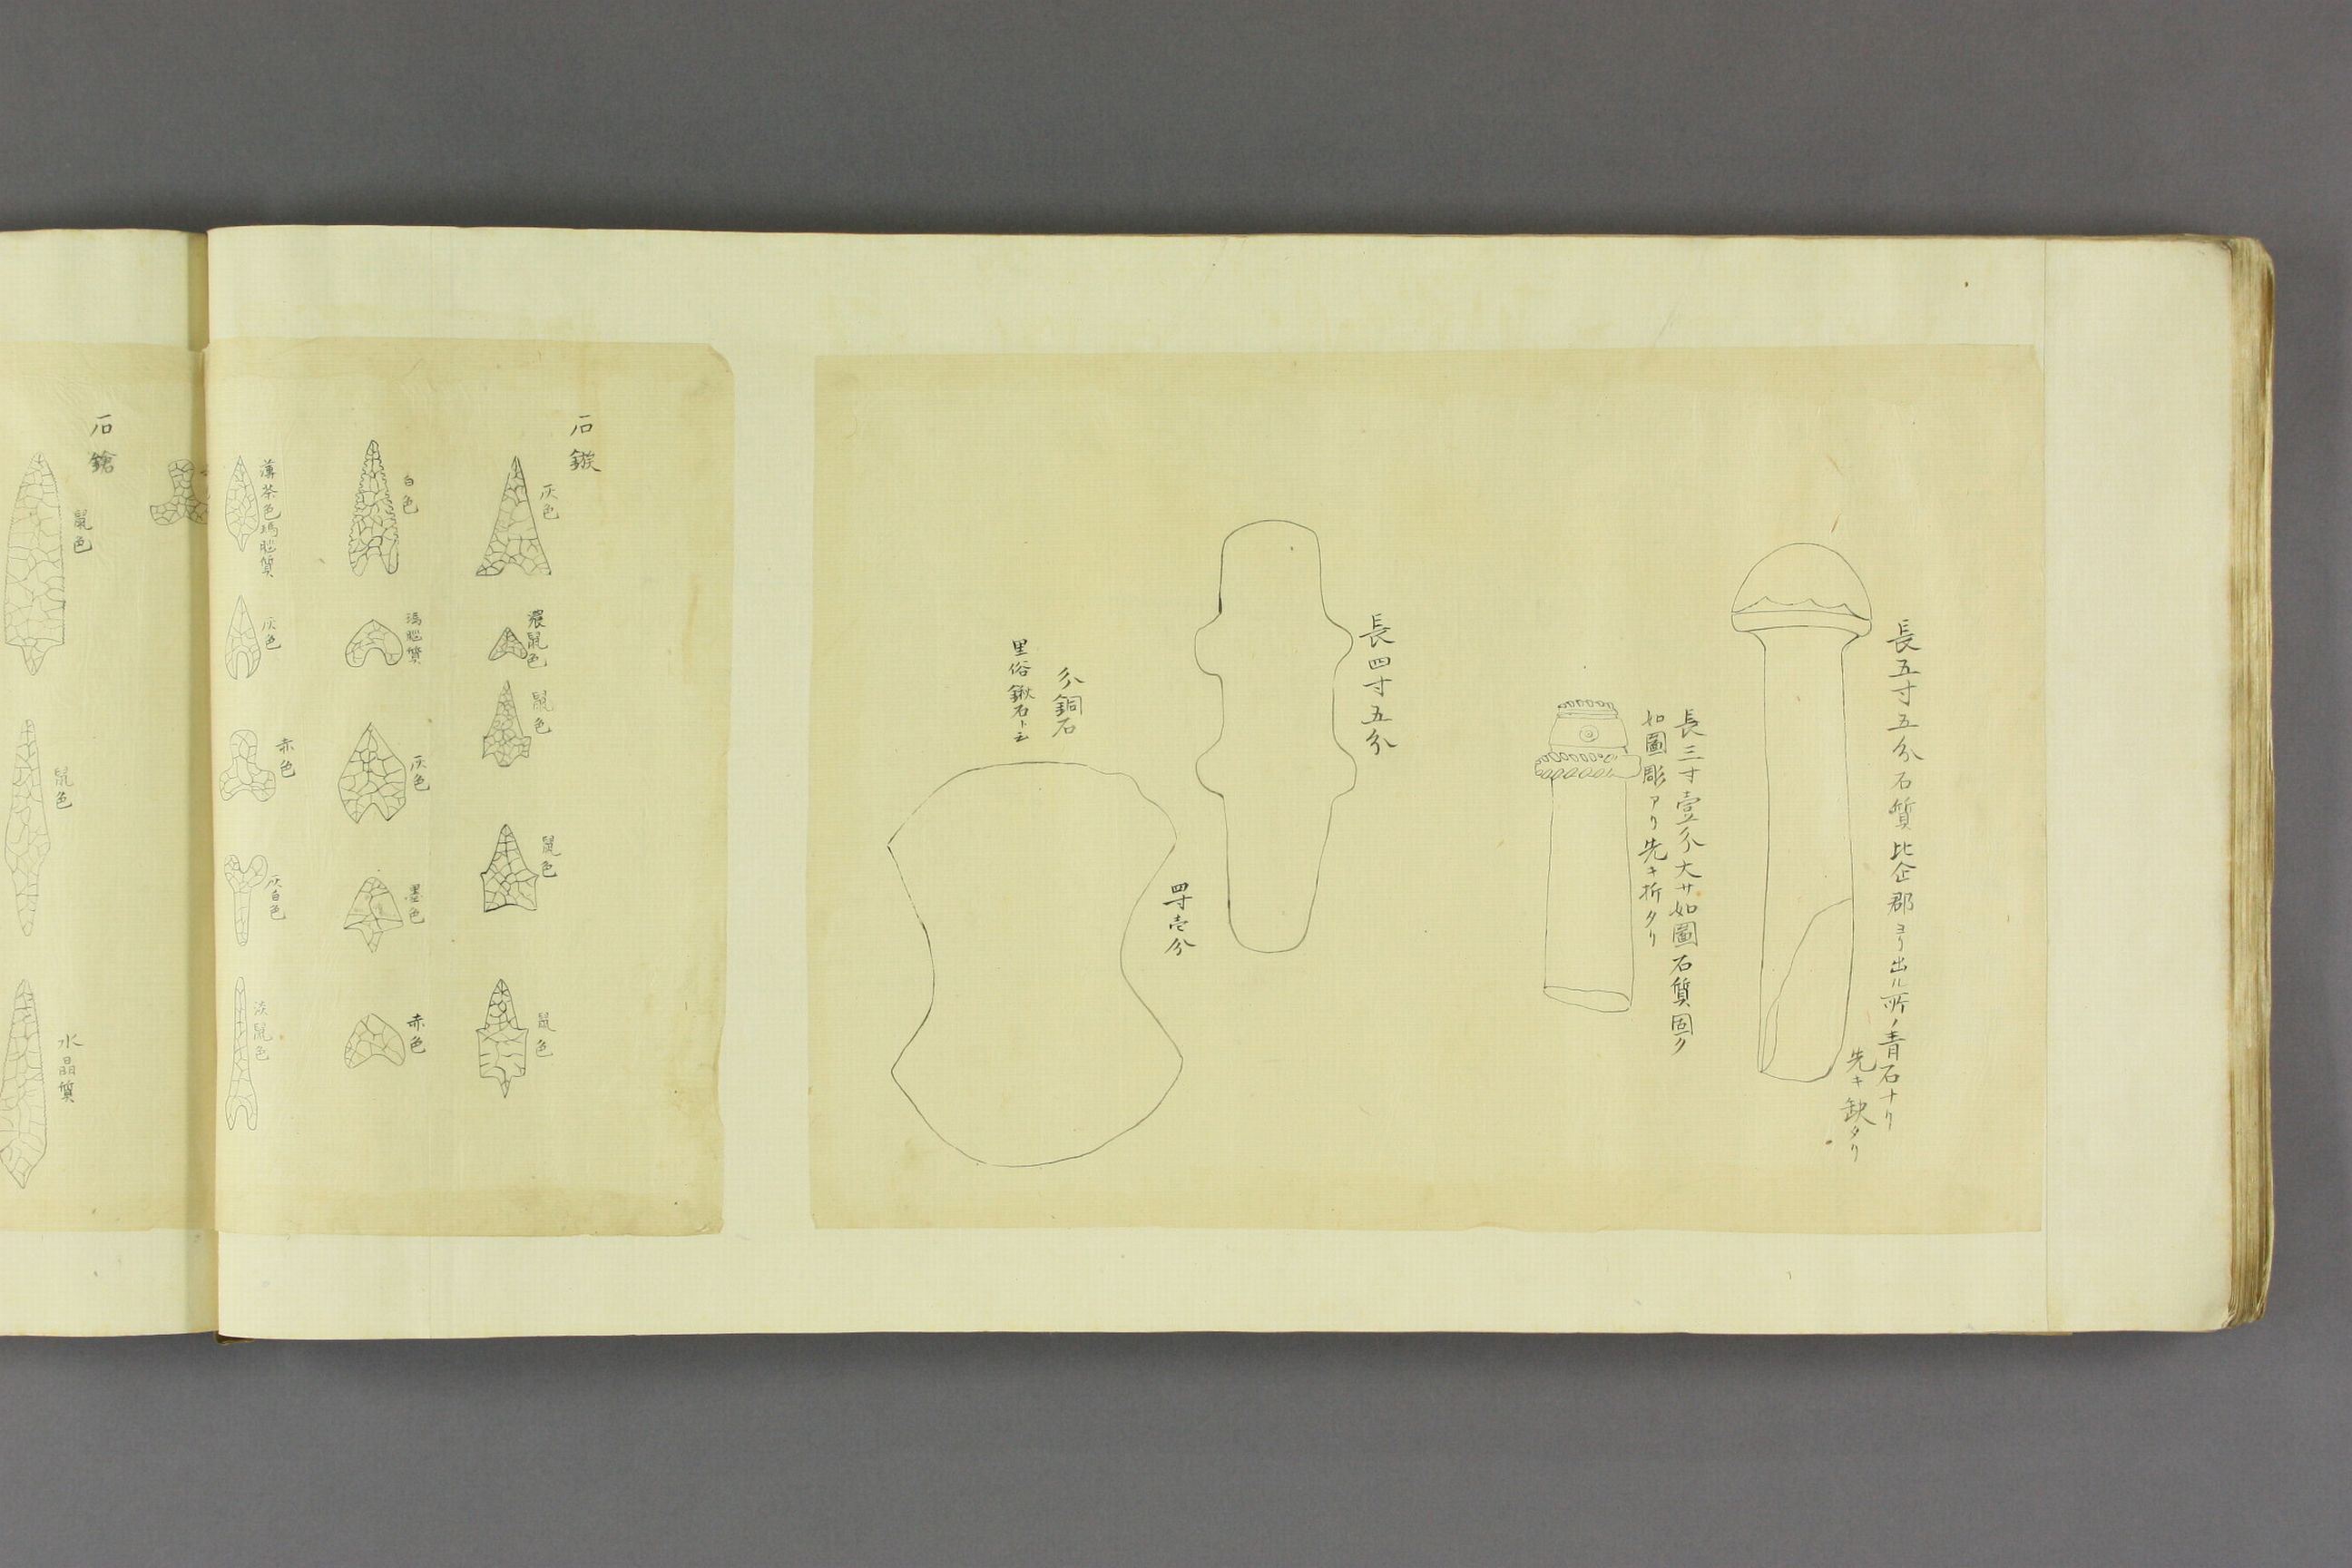 長五寸五分石質比企郡ヨリ出ル所ノ青石ナリ
先キ缺タリ
長三寸壹分大サ如圖石質固ク
如圖彫アリ先キ折タリ
長四寸五分
四寸壱分
分銅石
里俗鍬石ト云
石鏃
灰色
濃鼠色
鼠色
鼠色
鼠色
白色
瑪瑙質
灰色
墨色
赤色
薄茶色瑪瑙質
灰色
赤色
灰白色
淡鼠色
石鎗
鼠色
鼠色
水晶質